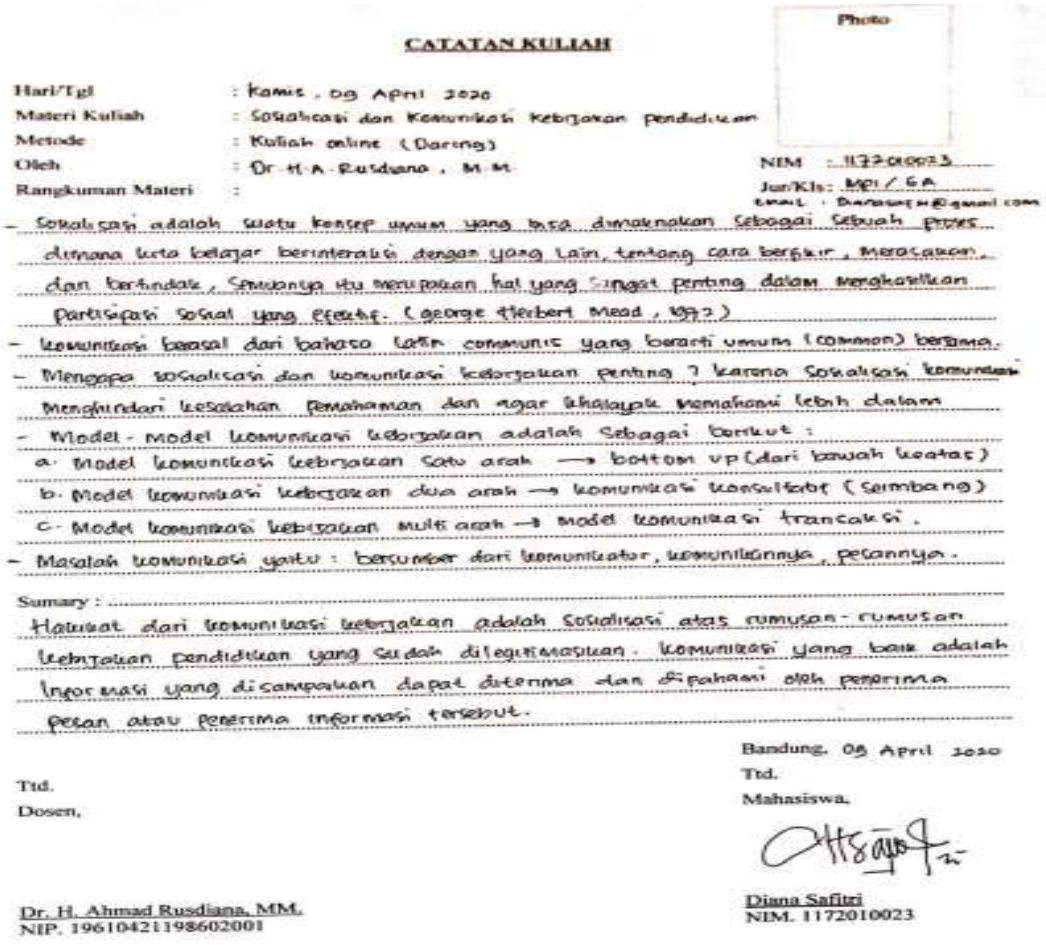 Photo
CATATAN KULIAH
Hari/Tgl : Kamis, 09 April 2020
Materi Kuliah : Sosialisasi dan Komunikasi Kebijakan pendidikan
Metode : Kuliah online (Daring)
Oleh : Dr. H. A. Rusdiana, M.M.
NIM : 1172010023
Rangkuman Materi :
Jur/Kls: MPI / 6A
email : @gmail.com
- Sosialisasi adalah suatu konsep umum yang bisa dimaknakan sebagai sebuah proses
dimana kita belajar berinteraksi dengan yang lain, tentang cara berfikir, merasakan,
dan bertindak, semuanya itu merupakan hal yang sangat penting dalam menghasilkan
partisipasi sosial yang efektif. (george Herbert Mead, 1972)
- komunikasi berasal dari bahasa Latin communis yang berarti umum (common) bersama.
- Mengapa sosialisasi dan komunikasi kebijakan penting ? karena sosialisasi komunikasi
menghindari kesalahan pemahaman dan agar khalayak memahami lebih dalam
- Model-model komunikasi kebijakan adalah sebagai berikut :
a. Model komunikasi kebijakan satu arah → bottom up (dari bawah keatas)
b. Model komunikasi kebijakan dua arah → komunikasi konsultatif (seimbang)
c. Model komunikasi kebijakan multi arah → model komunikasi transaksi.
- Masalah komunikasi yaitu : bersumber dari komunikator, komunikannya, pesannya.
Sumary :
Hakikat dari komunikasi kebijakan adalah sosialisasi atas rumusan-rumusan
kebijakan pendidikan yang sudah dilegitimasikan. komunikasi yang baik adalah
informasi yang disampaikan dapat diterima dan dipahami oleh penerima
pesan atau penerima informasi tersebut.
Bandung, 09 April 2020
Ttd.
Mahasiswa,
Ttd.
Dosen,
Diana Safitri
NIM. 1172010023
Dr. H. Ahmad Rusdiana, MM.
NIP. 196104211986021001